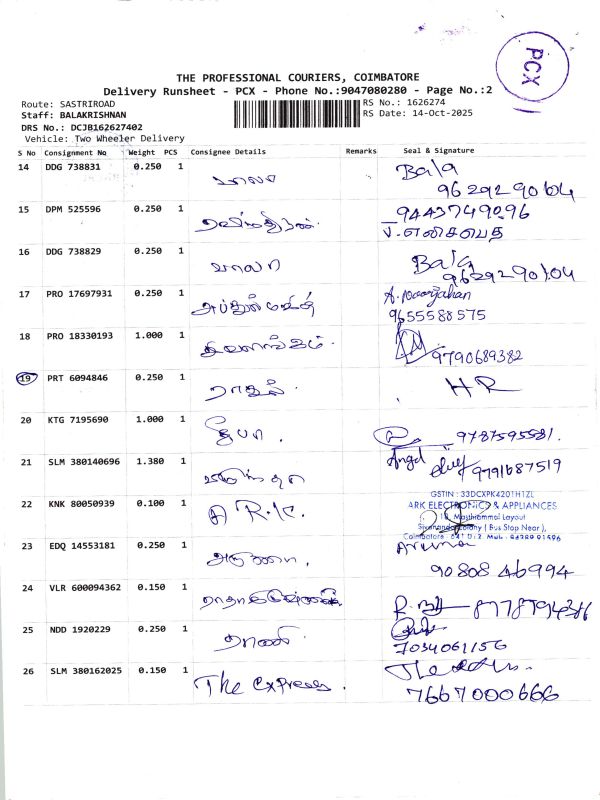 PCX
THE PROFESSIONAL COURIERS, COIMBATORE
Delivery Runsheet - PCX - Phone No.:9047080280 - Page No.:2
Route: SASTRIROAD RS No.: 1626274
Staff: BALAKRISHNAN RS Date: 14-Oct-2025
DRS No.: DCJB162627402
Vehicle: Two Wheeler Delivery
S No Consignment No Weight PCS Consignee Details Remarks Seal & Signature
14 DDG 738831 0.250 1 பாலா Bala
9629290604
15 DPM 525596 0.250 1 9443749296
16 DDG 738829 0.250 1 பாலா Bala
17 PRO 17697931 0.250 1
9655588575
18 PRO 18330193 1.000 1 9790689382
19 PRT 6094846 0.250 1 HR
20 KTG 7195690 1.000 1 9787595581.
21 SLM 380140696 1.380 1 Angel 9791687519
22 KNK 80050939 0.100 1 A R.K. GSTIN : 33DCXPK4201H1ZL
ARK ELECTRONICS & APPLIANCES
Masthammal Layout
Sivanandha Colony ( Bus Stop Near ),
23 EDQ 14553181 0.250 1 அருணா. Aruna
90808 46994
24 VLR 600094362 0.150 1
25 NDD 1920229 0.250 1 ராணி
7034061156
26 SLM 380162025 0.150 1 The express.
7667000666